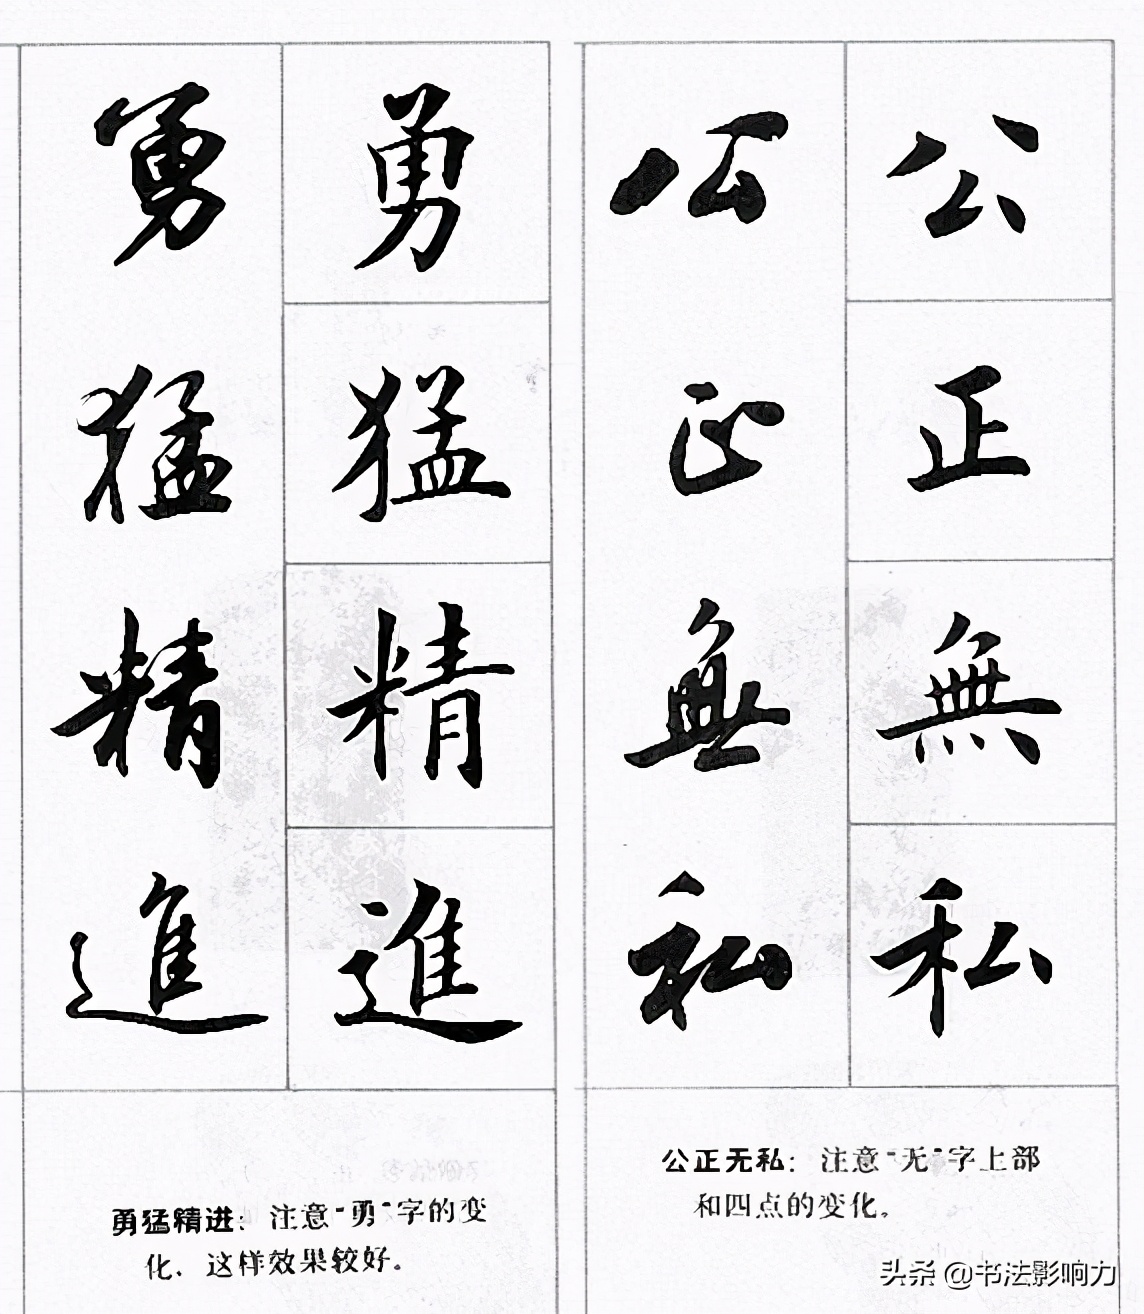 公正無私
公正無私
勇猛精進
勇猛精進
公正无私：注意“无”字上部
和四点的变化。
勇猛精进：注意“勇”字的变
化，这样效果较好。
头条 @书法影响力